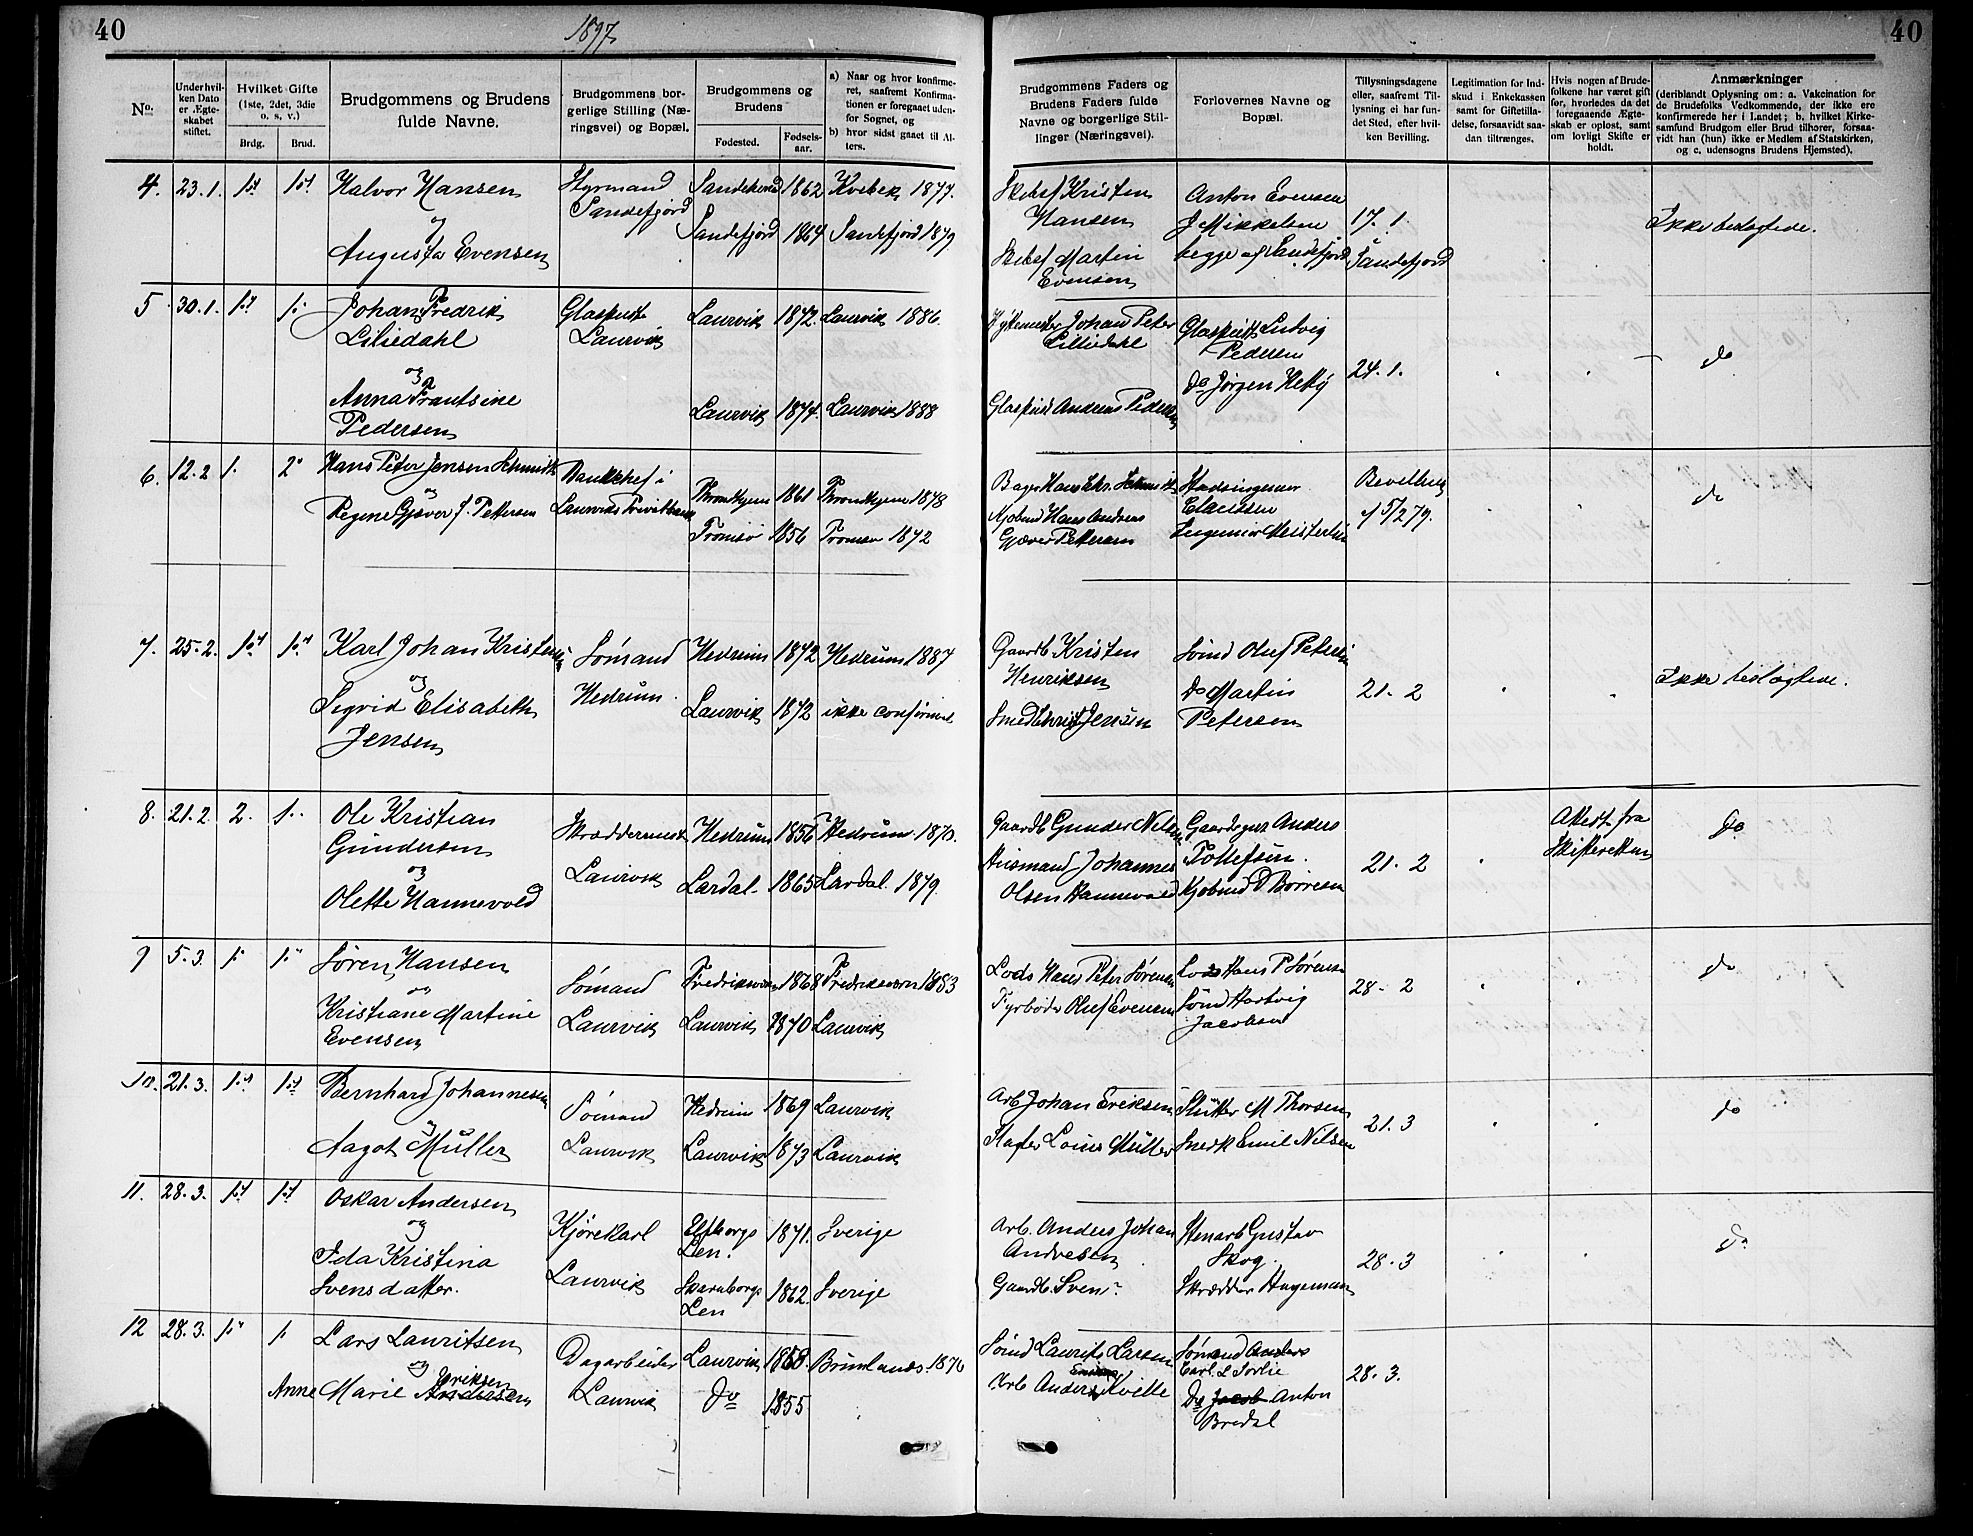 40
1897
40
No.
Under hvilken Dato er Ægteskabet stiftet.
Hvilket Gifte (1ste, 2det, 3die o. s. v.)
Brdg.
Brud.
Brudgommens og Brudens fulde Navne.
Brudgommens borgerlige Stilling (Næringsvei) og Bopæl.
Brudgommens og Brudens
Fødested.
Fødselsaar.
a) Naar og hvor konfirmeret, saafremt Konfirmationen er foregaaet udenfor Sognet, og
b) hvor sidst gaaet til Alters.
Brudgommens Faders og Brudens Faders fulde Navne og borgerlige Stillinger (Næringsvei).
Forlovernes Navne og Bopæl.
Tillysningsdagene eller, saafremt Tillysning ei har fundet Sted, efter hvilken Bevilling.
Legitimation for Indskud i Enkekassen samt for Giftetilladelse, forsaavidt saadan tiltrænges.
Hvis nogen af Brudefolkene har været gift før, hvorledes da det foregaaende Ægteskab er opløst, samt om lovligt Skifte er holdt.
Anmærkninger
(deriblandt Oplysning om: a. Vakcination for de Brudefolks Vedkommende, der ikke ere konfirmerede her i Landet; b. hvilket Kirkesamfund Brudgom eller Brud tilhører, forsaavidt han (hun) ikke er Medlem af Statskirken, og c. udensogns Brudens Hjemsted).
4. 23.1. 1st 1st Halvor Hansen
og
Augusta Evensen
Styrmand
Sandefjord
Sandeherred 1862 Kvebek 1877.
Sandefjord 1864 Sandefjord 1879
Skibsf Kristen
Hansen
Skibsf Martin
Evensen
Anton Evensen
J Mikkelsen
begge af Sandefjord
17. 1.
Sandefjord
Ikke beslægtede.
5 30.1. 1st 1. Johan Fredrik
Liliedahl
og
Anna Frantsine
Pedersen
Glaspust
Laurvik
Laurvik 1872. Laurvik 1886.
Laurvik 1874. Laurvik 1888
Hyttemester Johan Peter
Lilliedahl
Glaspust Andreas Pedersen
Glaspust Ludvig
Pedersen
Do Jørgen
24. 1.
do
6. 12.2 1. 2. Hans Peter Jensen Schmidt
og
Regine Gjæver f. Pettersen
Bankchef i
Laurviks Privatbank
Throndhjem 1861 Throndhjem 1878
Tromsø 1856 Tromsø 1872
Bager Hans Chr. Schmidt
Kjøbmd Hans Andreas
Gjæver Pettersen
Stadsingeniør
Claussen
Ingeniør
Bevilling
5/2 79.
do
7. 25.2. 1st 1st Karl Johan Kristensen
og
Sigrid Elisabeth
Jensen
Sømand
Hedrum
Hedrum 1872 Hedrum 1887
Laurvik 1872 ikke confirmert
Gaardb Kristen
Henriksen
Smed Christ Jensen
Sømd Oluf Petersen
Do Martin
Petersen
21. 2
Ikke beslægtede.
8. 21.2. 2. 1. Ole Kristian
Gundersen
og
Olette Hannevold
Skræddermest
Laurvik
Hedrum 1856 Hedrum 1870.
Lardal. 1865 Lardal 1879.
Gaardb Gunder Nilsen
Husmand Johannes
Olsen Hannevold
Gaardeger Anders
Tollefsen.
Kjøbmd D Børresen
21. 2
Attest fra
Skifteretten
do
9 5.3. 1. 1. Søren Hansen
og
Kristiane Martine
Evensen
Sømand
Laurvik
Fredriksværn 1868 Fredriksværn 1883
Laurvik 1870 Laurvik
Lods Hans Peter Sørensen
Fyrbøder Oluf Evensen
Lods Hans P Sørensen
Sømd Hartvig
Jacobsen
28. 2
do
10. 21.3. 1st 1st Bernhard Johannesen
og
Aagot Müller
Sømand
Laurvik
Hedrum 1869 Laurvik
Laurvik 1873 Laurvik
Arb Johan Eriksen
Slagter Louis Müller
M Thorsen
Snedk Emil Nilsen
21. 3
do
11. 28.3. 1st 1st Oskar Andersen
og
Ida Kristina
Svensdatter.
Kjørekarl
Laurvik
Elfsborgs
Len. 1871. Sverige
Skaraborgs
Len 1862. Sverige
Arb. Anders Johan
Andresen
Gaardb. Sven ?
Stenarb Gustav
Skog.
Skrædder Hageman
28. 3
do
12 28.3. 1st 1. Lars Lauritsen
og
Eriksen
Anne Marie Andersen
Dagarbeider
Laurvik
Laurvik 1858. Brunlanæs. 1876
Do 1855
Sømd Laurits Larsen
Arb Anders Kville
Sømand Anders
Carl L Torlie
Do Jacob Anton
Bredal
28. 3.